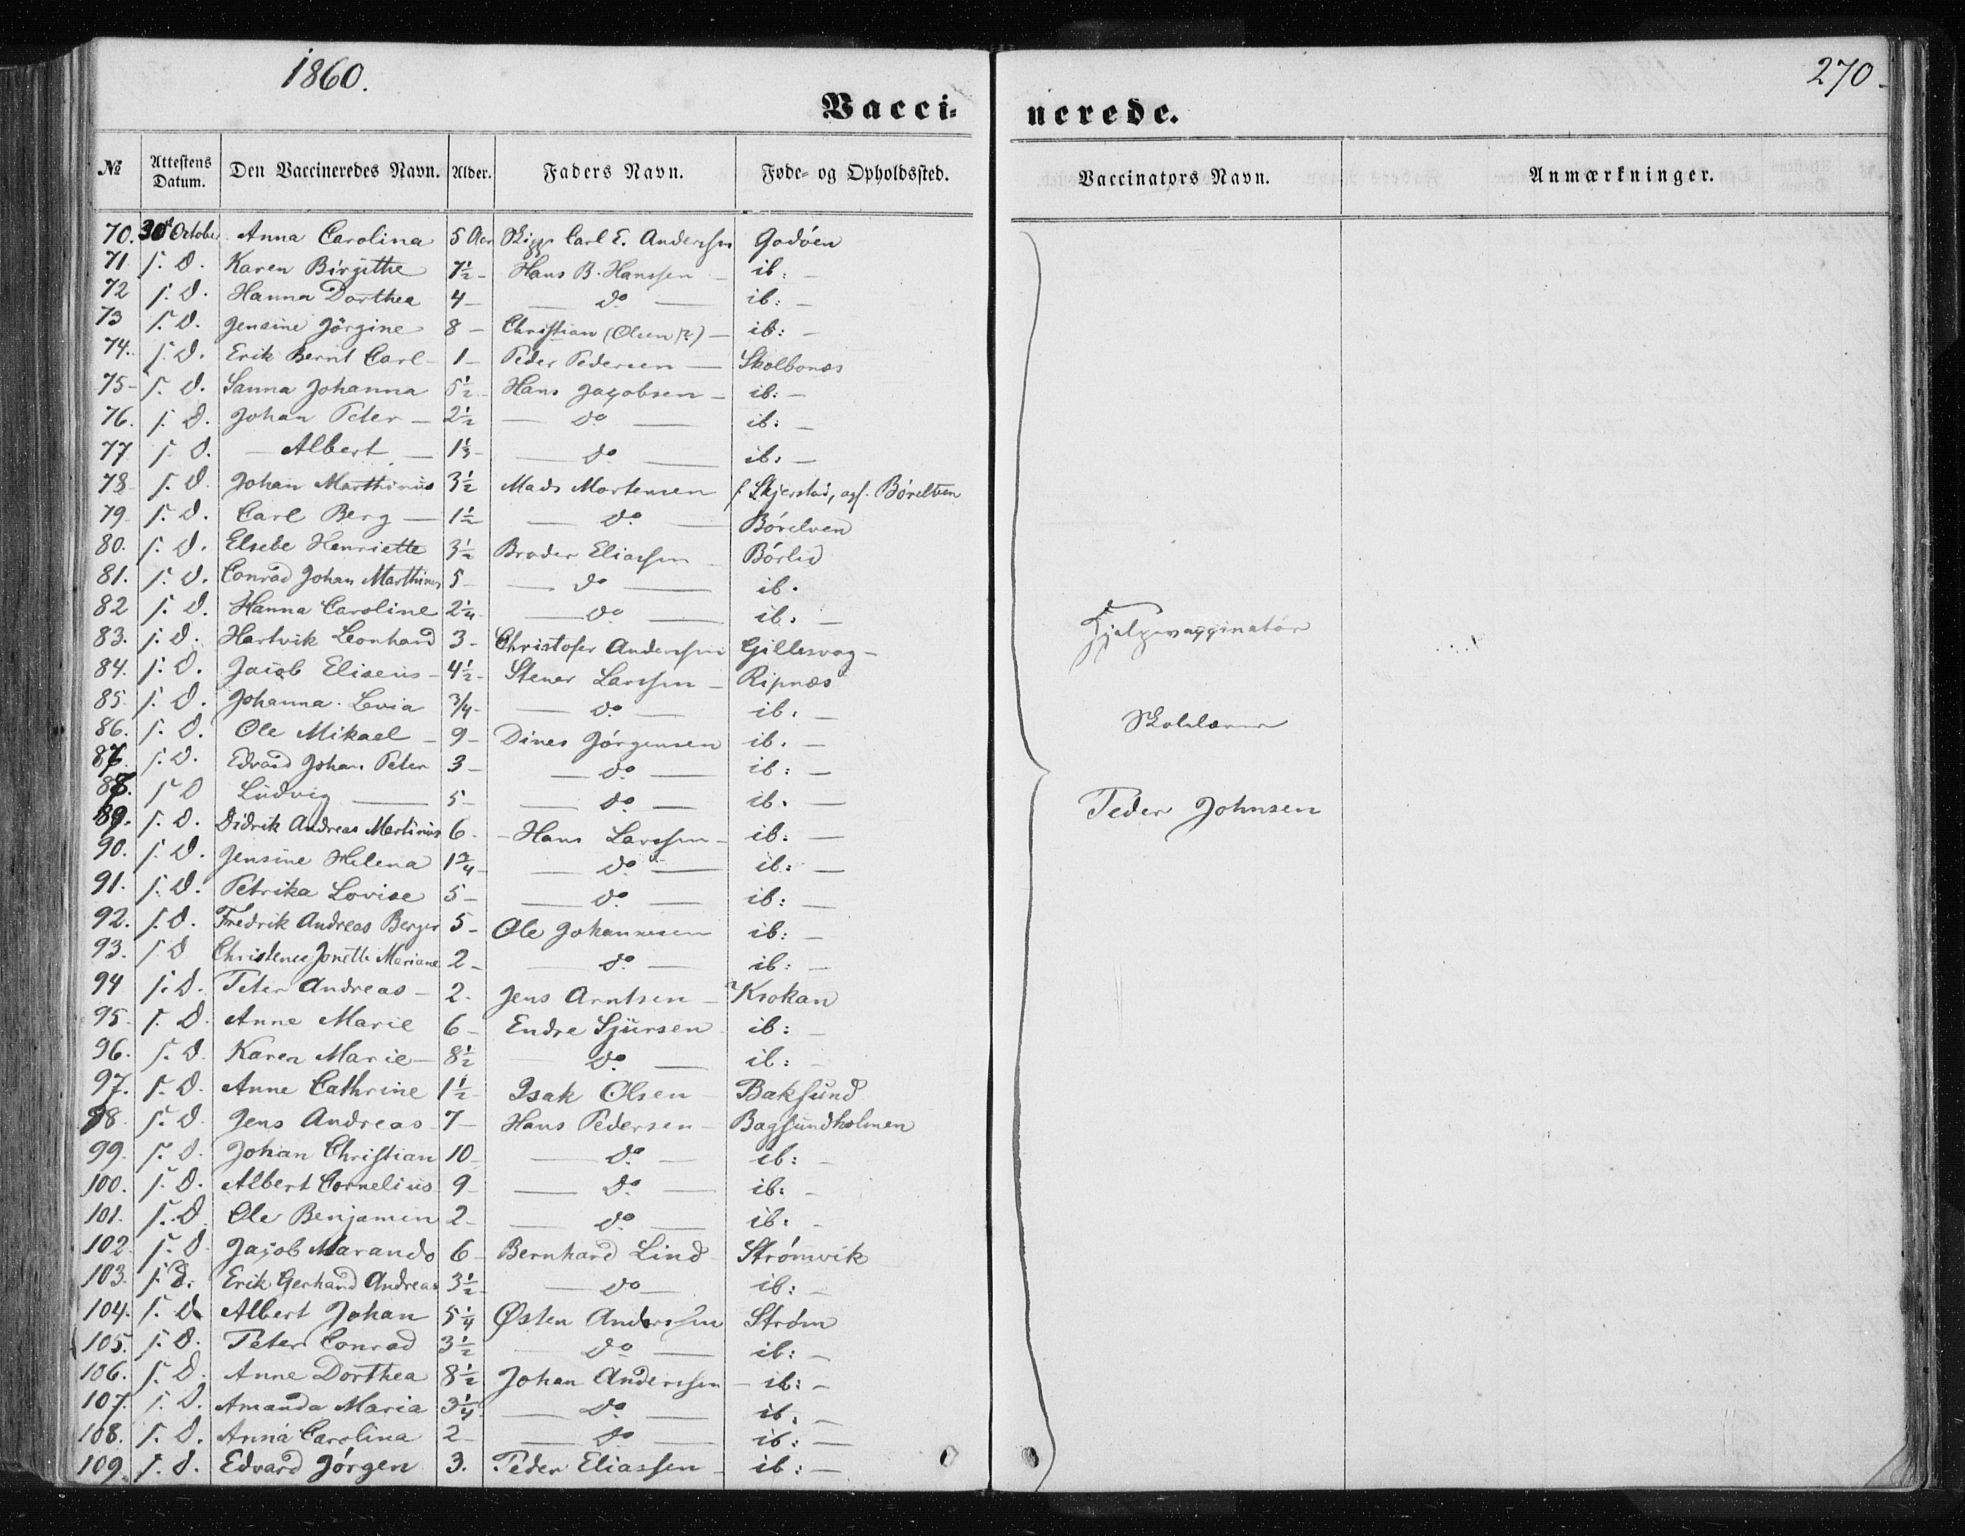 1860.
270.
Vacci-
nerede.
№ Attestens Datum. Den Vaccineredes Navn. Alder. Faders Navn. Føde- og Opholdssted. Vaccinators Navn. Anmærkninger.
70. 30 October Anna Carolina 5 Aar Carl E. Anderssen Godøen
71. s. D. Karen Birgithe 7½ - Hans B. Hanssen - ib: -
72 s. D. Hanna Dorthea 4 - — do — ib: -
73 s. D. Jensine Jörgine 8 - Christian (Olsen ?) - ib: -
74. s. D. Erik Bernt Carl - 1 - Peder Pedersen — Skolbonæs
75- s. D. Sanna Johanna 5½ - Hans Jacobsen - ib: -
76. s. D. Johan Peter - 2½ — do — ib: -
77 s. D. — Albert — 1⅓ - — do — ib: -
78 s. D. Johan Marthinus 3½ Mads Mortensen f. Skjerstad, opf. Børelven
79 s. D. Carl Berg — 1½ — do. — Børelven
80. s. D. Elsebe Henriette 3½ Broder Eliassen - Børlid
81. s. D. Conrad Johan Marthinus 5 - — do — ib.
82 s. D. Hanna Caroline 2¼ - — do. — ib. -
83. s. D. Hartvik Leonhard 3 - Christofer Anderssen Gillesvag -
84. s. D. Jacob Eliseus - 4½ - Stener Larssen - Ripnæs
85. s. D. Johanna Levia ¾ - — do. — ib. -
86. s. D. Ole Mikael - 9 - Dines Jørgensen ib. -
87. s. D. Edvard Johan Peter 3 - — do. — ib: -
88. s. D Ludvig — 5 - — do. — ib. -
89. s. D. Didrik Andreas Martinus 6 - Hans Larssen - ib: -
90. s. D. Jensine Helena 1¾ - — do. — ib: -
91. s. D. Petrika Lovise 5 - — do. — ib: -
92. s. D. Fredrik Andreas Berger 5 - Ole Johannesen ib: -
93. s D Christence Jonette Mariane 2 - — do. — ib: -
94 s. D. Peter Andreas - 2. Jens Arntsen - Krokan
95. s. D. Anne Marie 6 - Endre Sjursen ib: -
96. s. D. Karen Marie - 8½ — do. — ib: -
97. s. D. Anne Cathrine 1½ - Isak Olsen - Baksund
98 s. D. Jens Andreas 7 - Hans Pedersen - Bagsundholmen
99. s. D. Johan Christian 10 - — do. — ib: -
100. s. D. Albert Cornelius 9 - — do. — ib: -
101. s. D Ole Benjamin 2 - — do. — ib: -
102. s. D. Jacob Marands 6 - Bernhard Lind - Strømvik
103. s. D. Erik Gerhard Andreas 3½ - — do — ib: -
104. s. D Albert Johan 5¼ Østen Anderssen Strøm
105. s. D. Peter Conrad 3½ — do — ib: -
106. s. D. Anne Dorthea 8½ Johan Anderssen - ib: -
107. s. D. Amanda Maria 3¼ — do. — ib. -
108. s. D. Anna Carolina 2 - — do. — ib: -
109. s. D. Edvard Jörgen 3. Peder Eliassen - ib: -
Hjælpevaccinatør
Skolelærer
Peder Johnsen